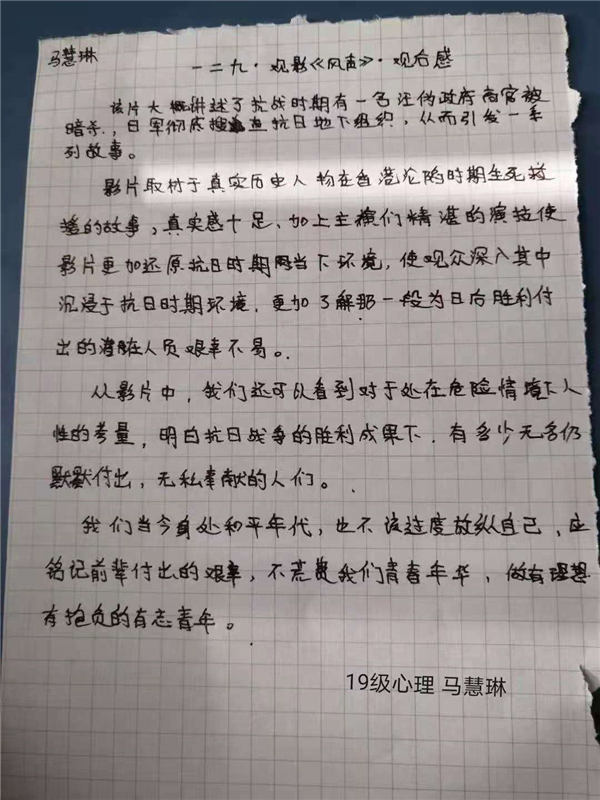 马慧琳
一二九·观影《风声》·观后感
该片大概讲述了抗战时期有一名汪伪政府高官被
暗杀,日军彻底搜查抗日地下组织,从而引发一系
列故事。
影片取材于真实历史人物在香港沦陷时期生死救
援的故事,真实感十足、加上主演们精湛的演技使
影片更加还原抗日时期当下环境,使观众深入其中
沉浸于抗日时期环境,更加了解那一段为日后胜利付
出的潜脏人员艰辛不易。
从影片中,我们还可以看到对于处在危险情境下人
性的考量,明白抗日战争的胜利成果下,有多少无名仍
默默付出,无私奉献的人们。
我们当今身处和平年代,也不该过度放纵自己,应
铭记前辈付出的艰辛,不荒费我们青春年华,做有理想
有抱负的有志青年。
19级心理 马慧琳